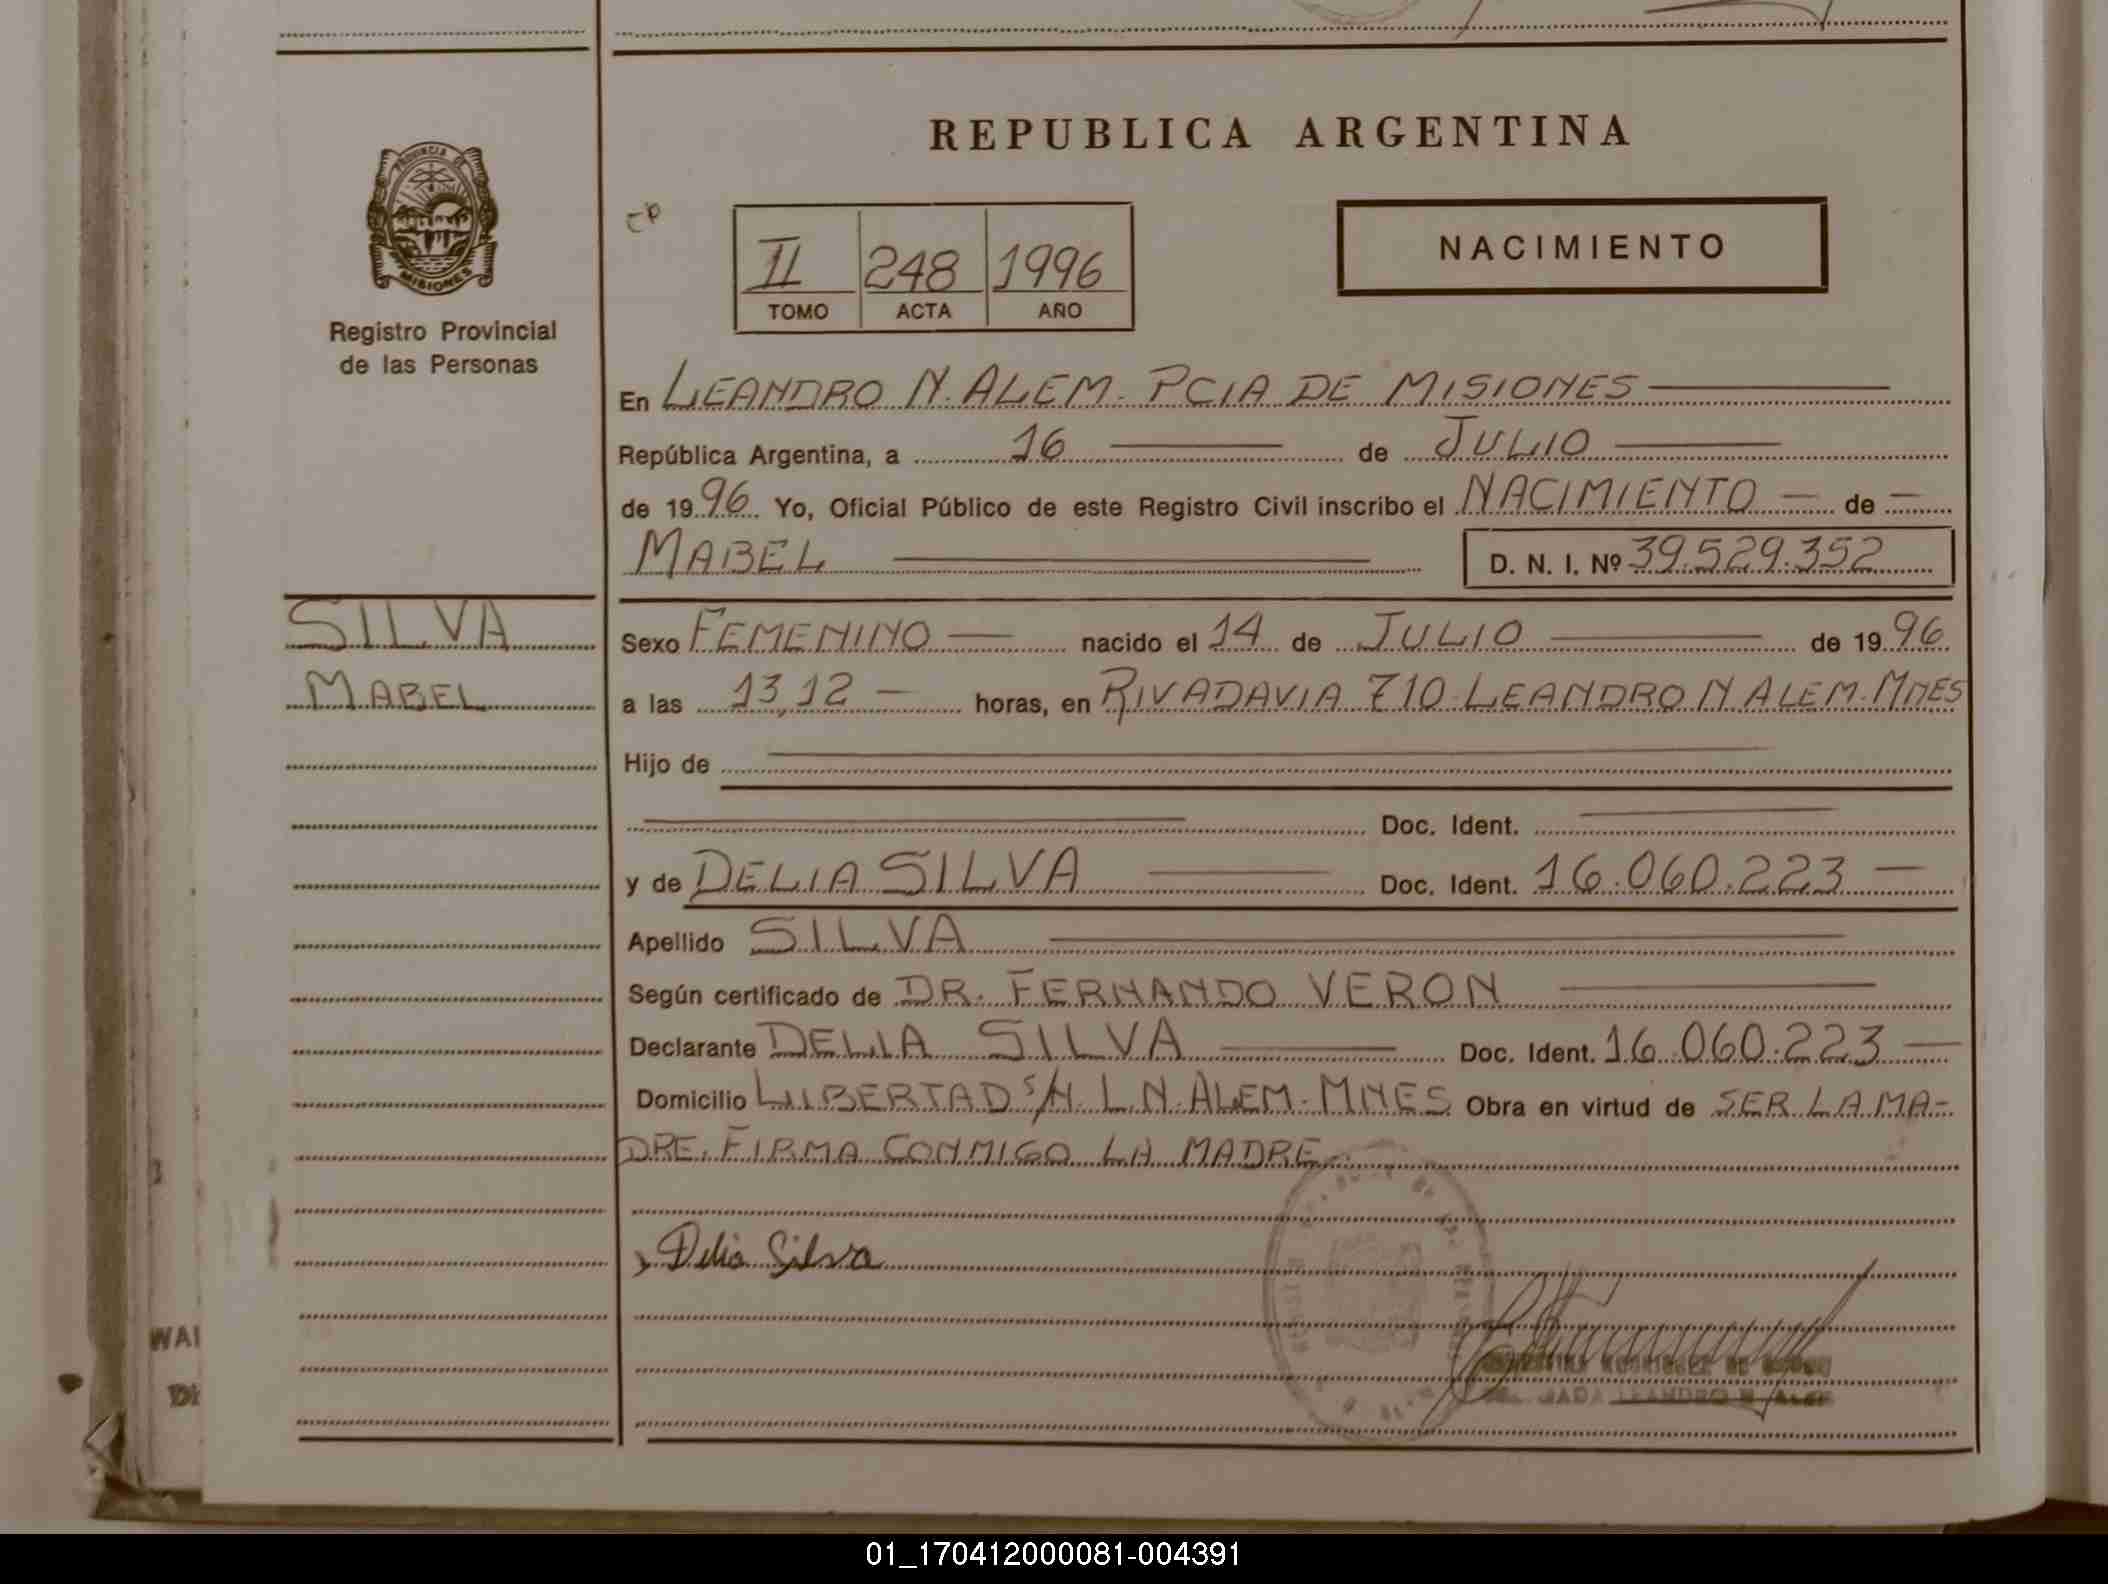 REPUBLICA ARGENTINA
PROVINCIA DE
MISIONES
Registro Provincial
de las Personas
II 248 1996
TOMO ACTA AÑO
NACIMIENTO
En LEANDRO N. ALEM. PCIA DE MISIONES
República Argentina, a 16 de JULIO
de 1996 Yo, Oficial Público de este Registro Civil inscribo el NACIMIENTO de
MABEL D. N. I. Nº 39.529.352
SILVA
MABEL
Sexo FEMENINO nacido el 14 de JULIO de 1996
a las 13,12 horas, en RIVADAVIA 710. LEANDRO N ALEM. MNES
Hijo de
Doc. Ident.
y de DELIA SILVA Doc. Ident. 16.060.223
Apellido SILVA
Según certificado de DR. FERNANDO VERON
Declarante DELIA SILVA Doc. Ident. 16.060.223
Domicilio LIBERTAD S/N. L.N. ALEM. MNES Obra en virtud de SER LA MA-
DRE. FIRMA CONMIGO LA MADRE
Delia Silva
LEANDRO N. ALEM
WAI
01_170412000081-004391